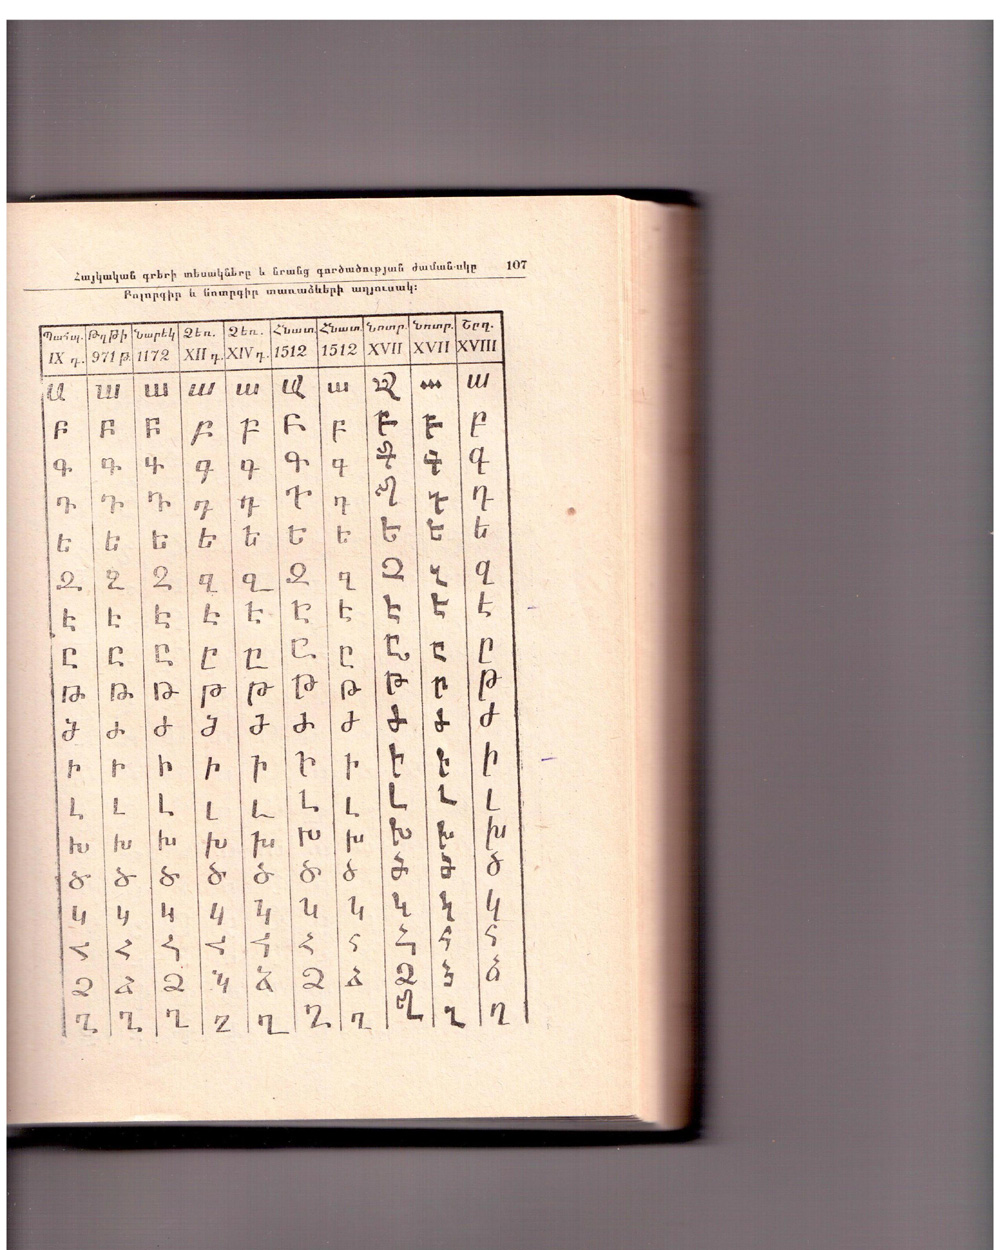 Հայկական գրերի տեսակները և նրանց գործածության ժամանակը 107
Բոլորգիր և նոտրգիր տառաձևերի աղյուսակ:
Պատմ. Թղթի Նարեկ Ձեռ. Ձեռ. Հնատ. Հնատ. Նոտր. Նոտր. Շղգ.
IX դ. 971 թ. 1172 XII դ. XIV դ. 1512 1512 XVII XVII XVIII
ա ա ա ա ա ա ա ա ա ա
բ բ բ բ բ բ բ բ բ բ
գ գ գ գ գ գ գ գ գ գ
դ դ դ դ դ դ դ դ դ դ
ե ե ե ե ե ե ե ե ե ե
զ զ զ զ զ զ զ զ զ զ
է է է է է է է է է է
ը ը ը ը ը ը ը ը ը ը
թ թ թ թ թ թ թ թ թ թ
ժ ժ ժ ժ ժ ժ ժ ժ ժ ժ
ի ի ի ի ի ի ի ի ի ի
լ լ լ լ լ լ լ լ լ լ
խ խ խ խ խ խ խ խ խ խ
ծ ծ ծ ծ ծ ծ ծ ծ ծ ծ
կ կ կ կ կ կ կ կ կ կ
հ հ հ հ հ հ հ հ հ հ
ձ ձ ձ ձ ձ ձ ձ ձ ձ ձ
ղ ղ ղ ղ ղ ղ ղ ղ ղ ղ